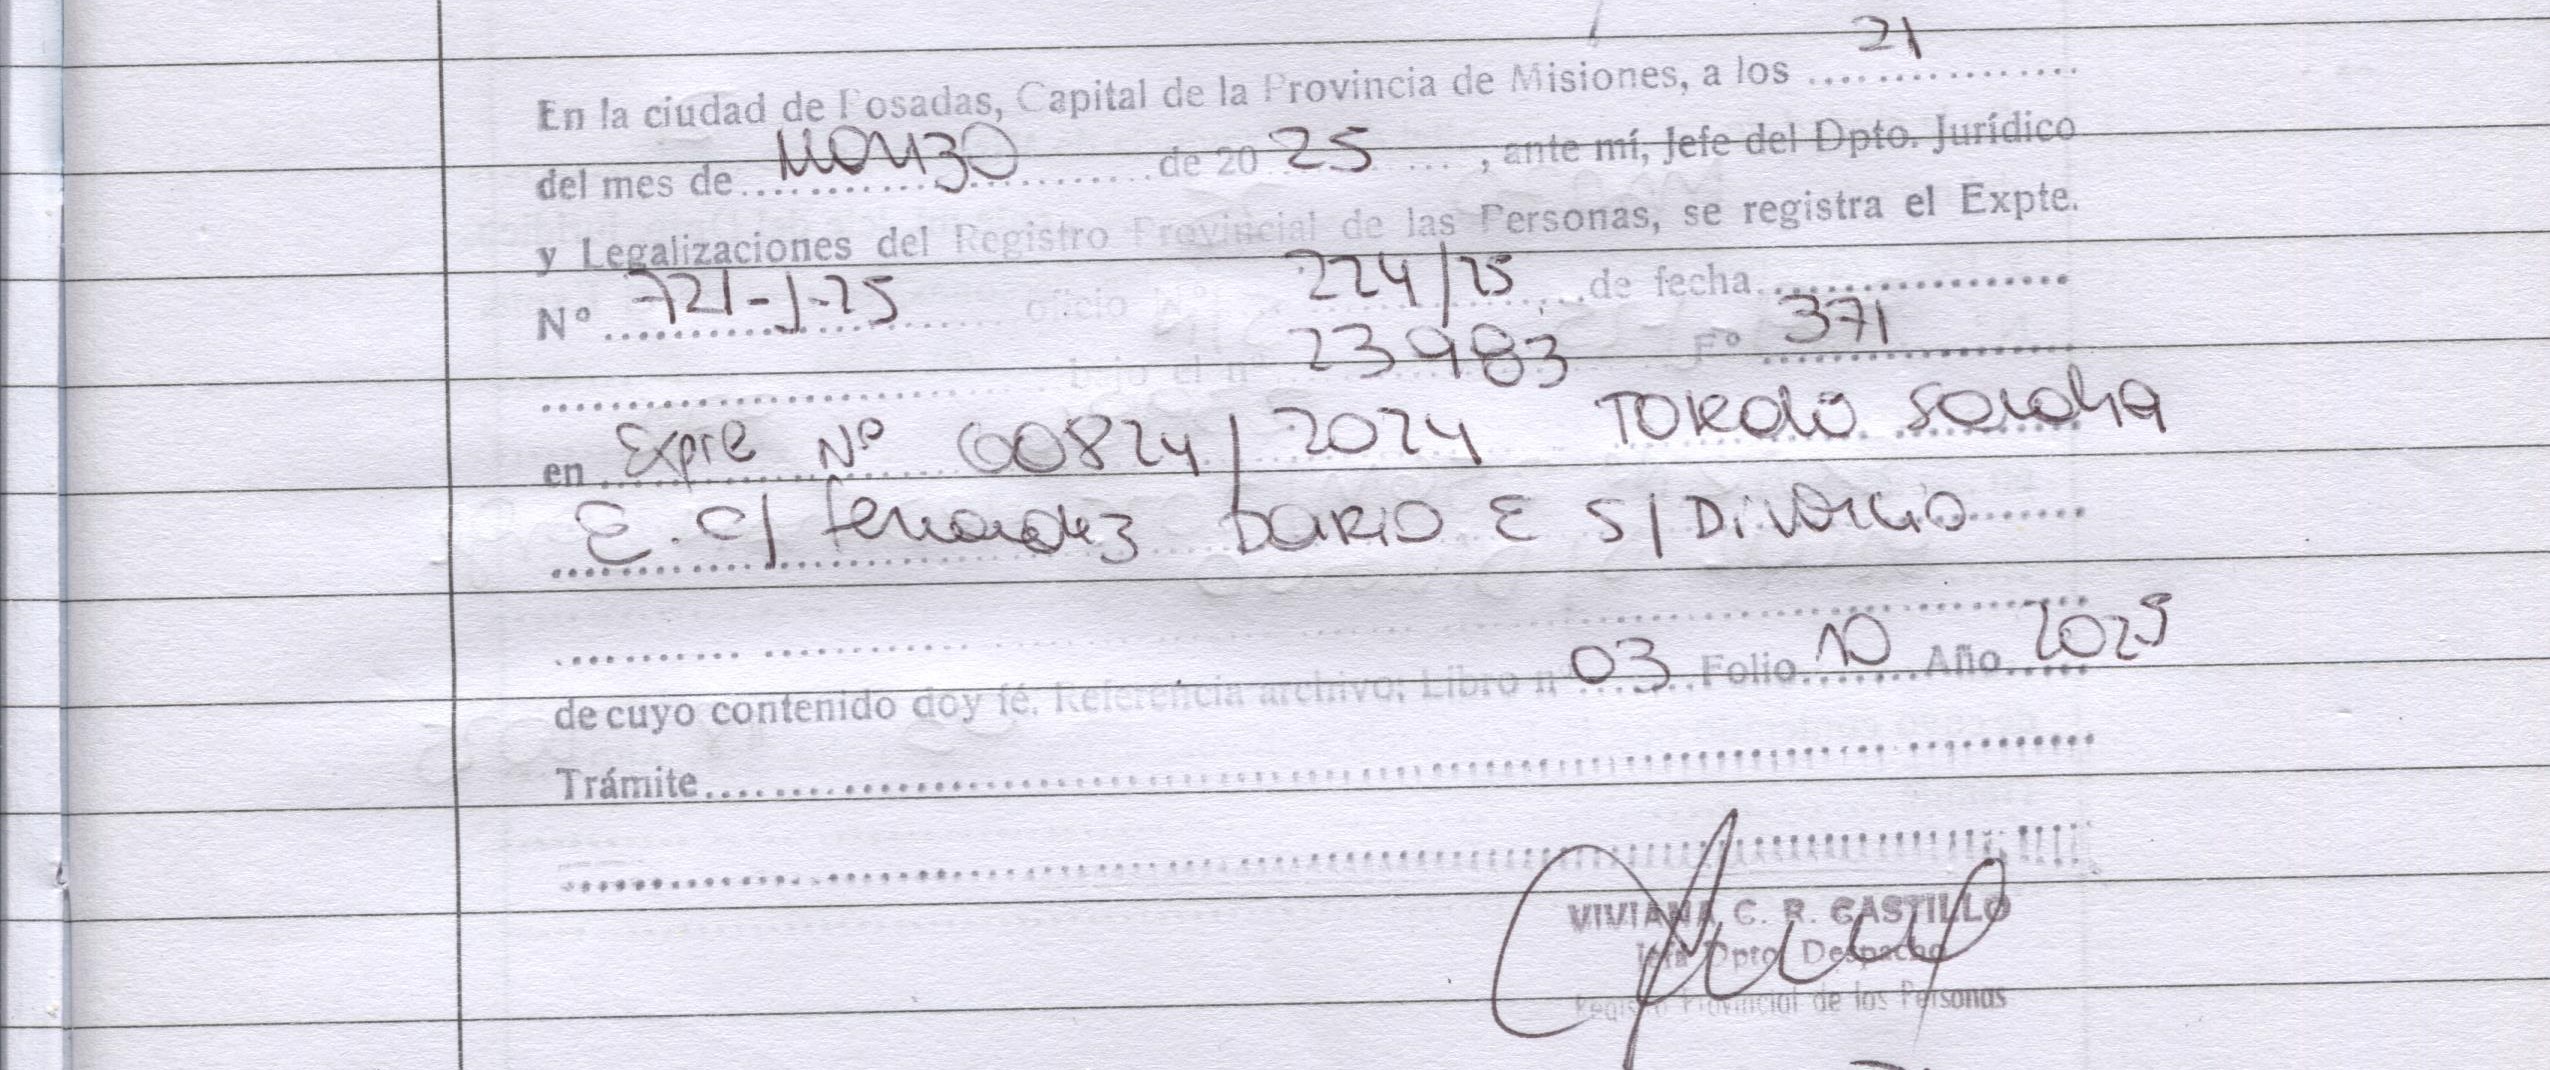 En la ciudad de Posadas, Capital de la Provincia de Misiones, a los 21
del mes de Marzo de 20 25, ante mí, Jefe del Dpto. Jurídico
y Legalizaciones del Registro Provincial de las Personas, se registra el Expte.
N° 721-J-25 oficio N° 224/25 de fecha
bajo el n° 23983 F° 371
en Expte N° 00824/2024 Toledo Sandra
E. c/ Fernandez Dario E s/ Divorcio
de cuyo contenido doy fé. Referencia archivo; Libro n° 03 Folio 10 Año 2025
Trámite
VIVIANA C. R. CASTILLO
Jefa Dpto Despacho
Registro Provincial de las Personas